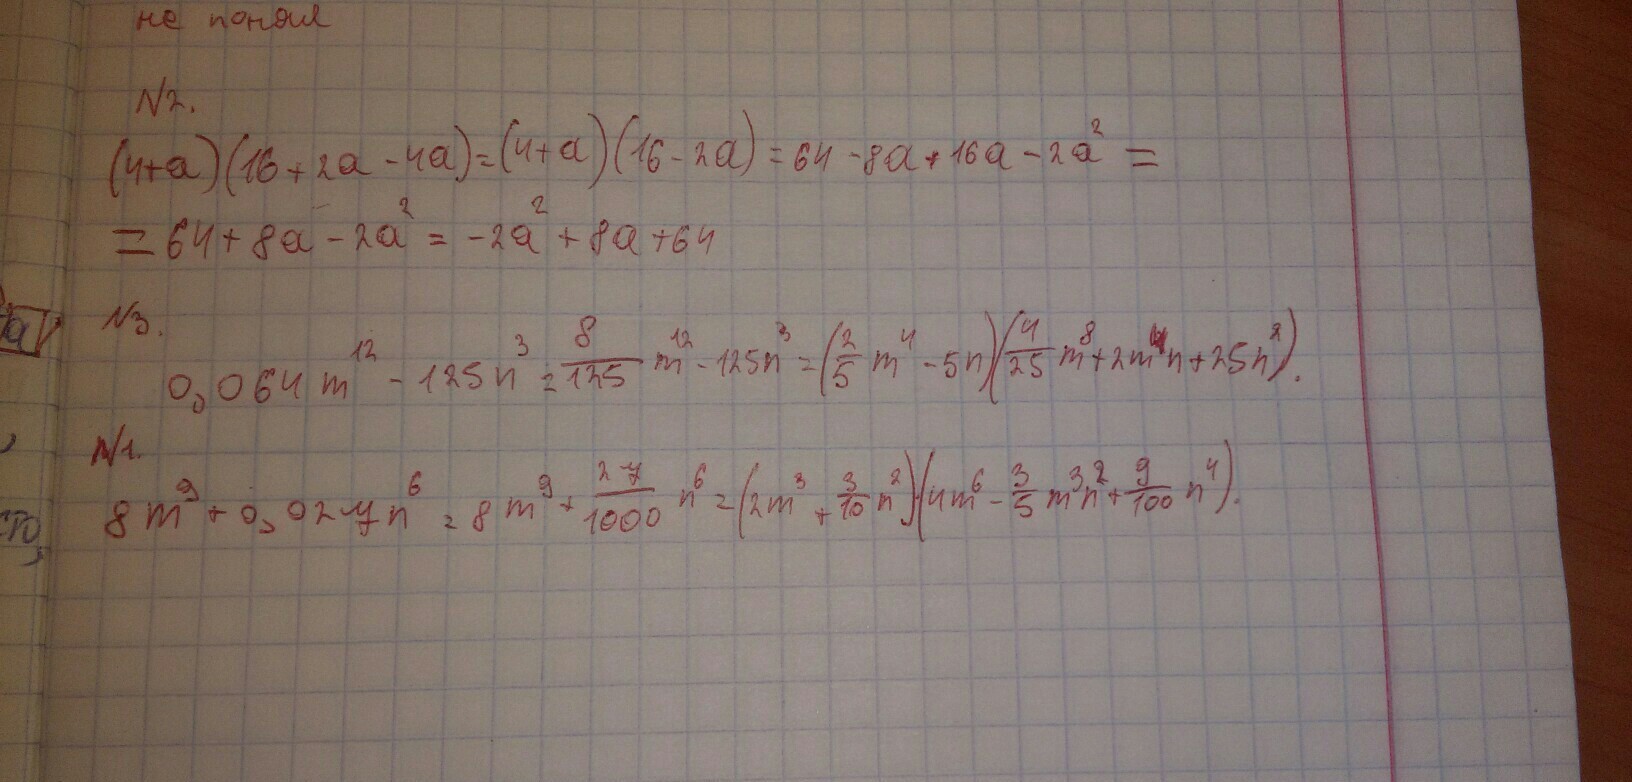 не понял
N2.
(4+a)(16+2a-4a)=(4+a)(16-2a)=64-8a+16a-2a²=
=64+8a-2a²=-2a²+8a+64
N3.
0,064m¹²-125n³=8/125 m¹²-125n³=(2/5 m⁴-5n)(4/25 m⁸+2m⁴n+25n²).
N1.
8m⁹+0,027n⁶=8m⁹+27/1000 n⁶=(2m³+3/10 n²)(4m⁶-3/5 m³n²+9/100 n⁴).